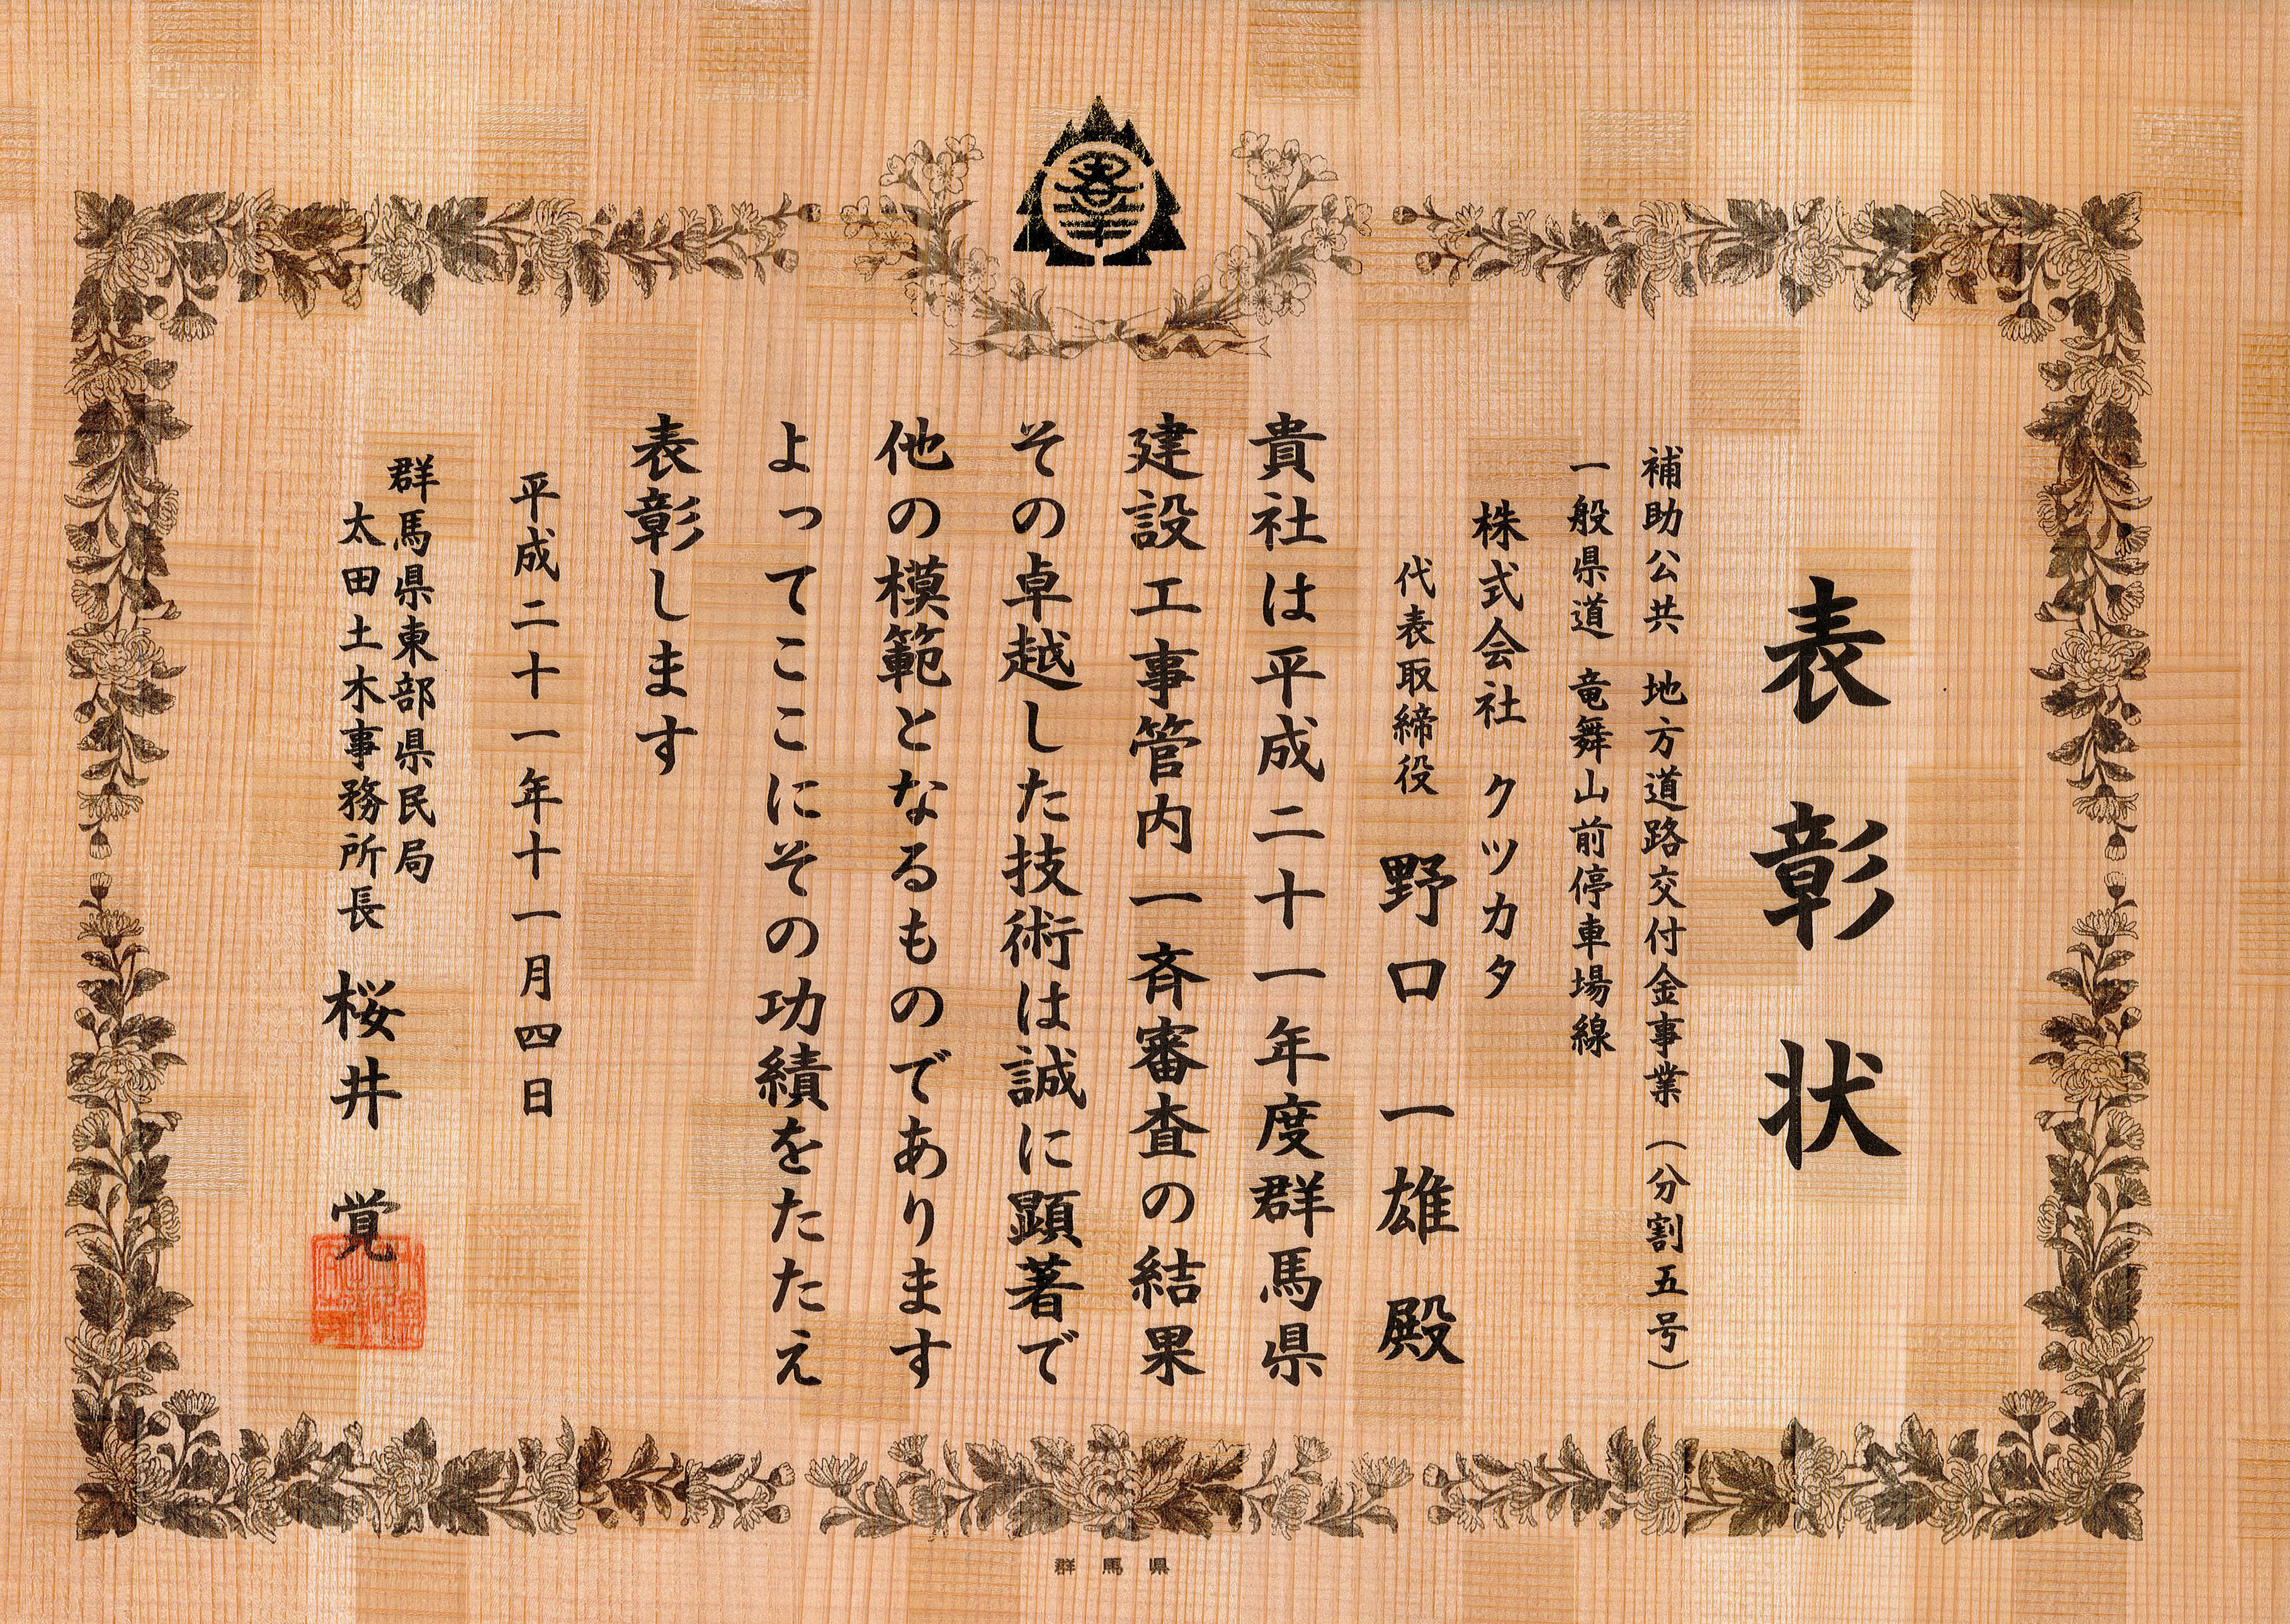 表彰状
補助公共 地方道路交付金事業（分割五号）
一般県道 竜舞山前停車場線
株式会社 クツカタ
代表取締役 野口 一雄 殿
貴社は平成二十一年度群馬県
建設工事管内一斉審査の結果
その卓越した技術は誠に顕著で
他の模範となるものであります
よってここにその功績をたたえ
表彰します
平成二十一年十一月四日
群馬県東部県民局
太田土木事務所長 桜井 覚
群馬県